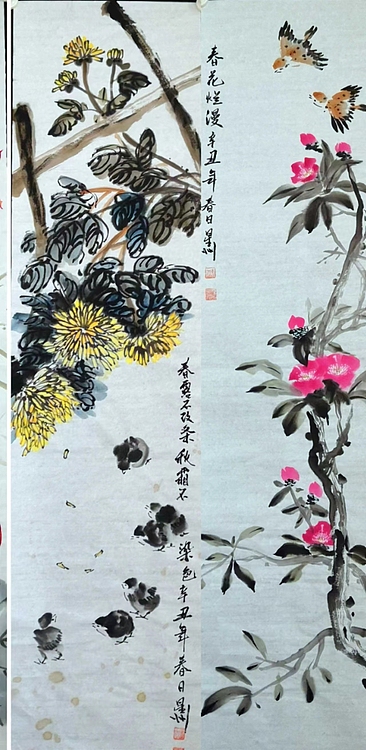 春露不改条秋霜不染色辛丑年春日
春花烂漫辛丑年春日